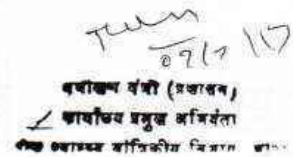 07/7/17
अधीक्षण यंत्री (प्रशासन)
कार्यालय प्रमुख अभियंता
स्वास्थ्य यांत्रिकीय विभाग